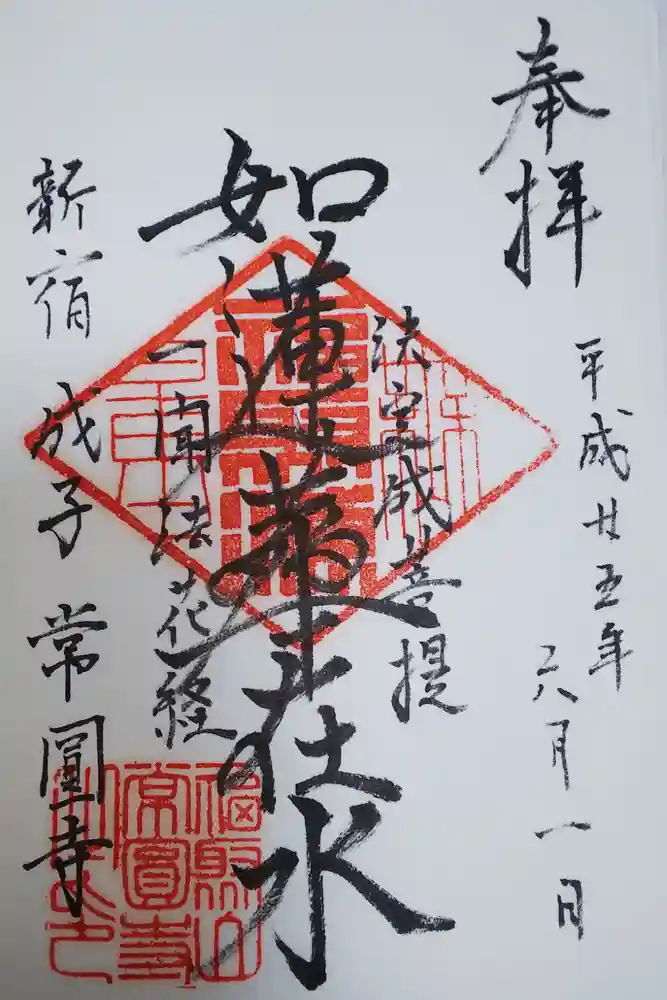 奉拝
平成廿五年
六月一日
決定成菩提
如蓮華在水
一聞法花経
新宿 成子 常圓寺
福聚山
常圓寺